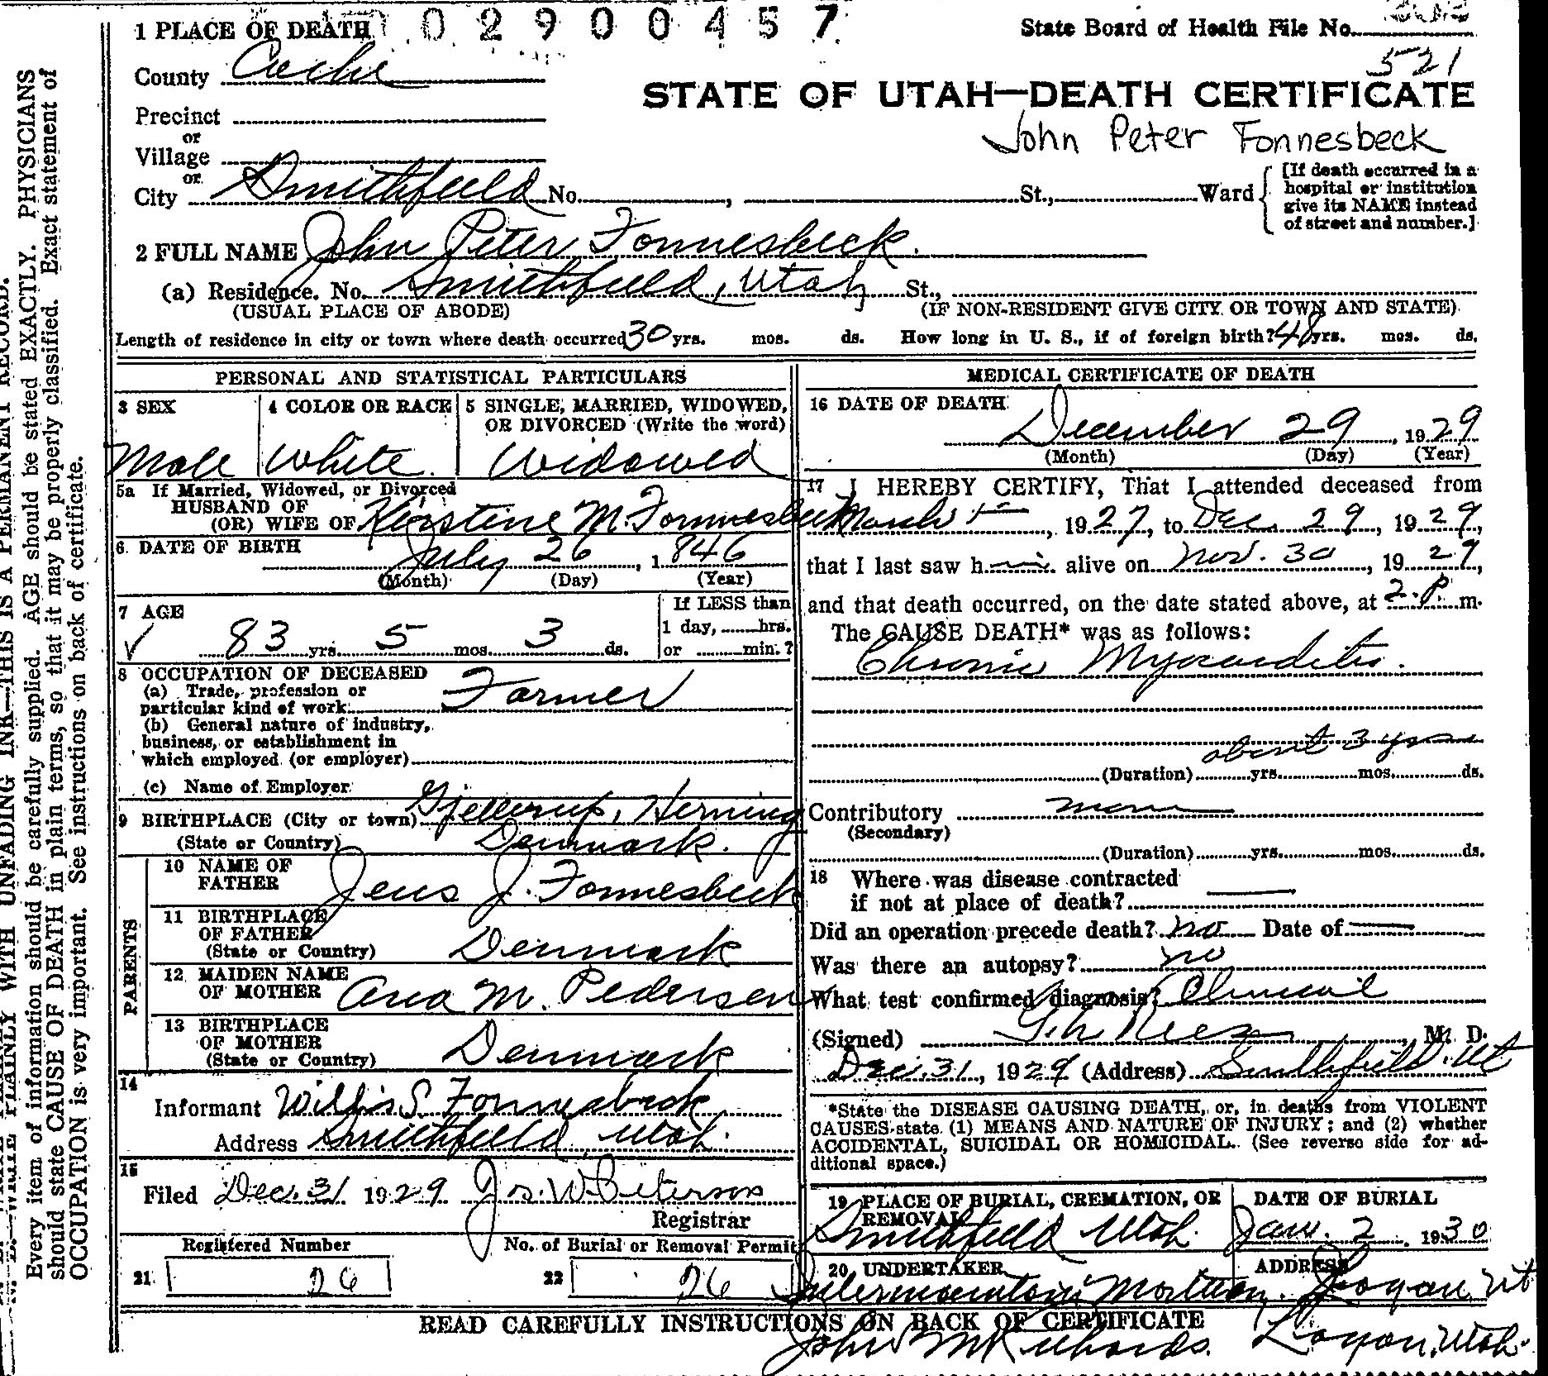 1 PLACE OF DEATH 02900457
State Board of Health File No.
521
County Cache
STATE OF UTAH—DEATH CERTIFICATE
Precinct
John Peter Fonnesbeck
or
Village
or
City Smithfield No. , St., Ward
[If death occurred in a
hospital or institution
give its NAME instead
of street and number.]
2 FULL NAME John Peter Fonnesbeck.
(a) Residence. No. Smithfield, Utah St.,
(USUAL PLACE OF ABODE) (IF NON-RESIDENT GIVE CITY OR TOWN AND STATE)
Length of residence in city or town where death occurred 30 yrs. mos. ds. How long in U. S., if of foreign birth? 48 yrs. mos. ds.
PERSONAL AND STATISTICAL PARTICULARS
3 SEX 4 COLOR OR RACE 5 SINGLE, MARRIED, WIDOWED,
OR DIVORCED (Write the word)
Male White. Widowed
5a If Married, Widowed, or Divorced
HUSBAND OF
(OR) WIFE OF Kirstine M. Fonnesbeck
6. DATE OF BIRTH July 26, 1846
(Month) (Day) (Year)
7 AGE If LESS than
1 day, hrs.
83 yrs. 5 mos. 3 ds. or min.?
8 OCCUPATION OF DECEASED
(a) Trade, profession or
particular kind of work Farmer
(b) General nature of industry,
business, or establishment in
which employed (or employer)
(c) Name of Employer
9 BIRTHPLACE (City or town) Gjellerup, Herning
(State or Country) Denmark.
PARENTS
10 NAME OF
FATHER Jens J. Fonnesbeck
11 BIRTHPLACE
OF FATHER
(State or Country) Denmark
12 MAIDEN NAME
OF MOTHER Ana M. Pedersen
13 BIRTHPLACE
OF MOTHER
(State or Country) Denmark
14
Informant Willis S. Fonnesbeck
Address Smithfield, Utah.
15
Filed Dec. 31 1929 Peterson
Registrar
Registered Number No. of Burial or Removal Permit
21 26 22 26
MEDICAL CERTIFICATE OF DEATH
16 DATE OF DEATH
December 29, 1929
(Month) (Day) (Year)
17 I HEREBY CERTIFY, That I attended deceased from
March 1, 1927, to Dec. 29, 1929,
that I last saw him alive on Nov. 30, 1929,
and that death occurred, on the date stated above, at 2 P. m.
The CAUSE DEATH* was as follows:
Chronic Myocarditis.
about 3 yrs
(Duration) yrs. mos. ds.
Contributory none
(Secondary)
(Duration) yrs. mos. ds.
18 Where was disease contracted
if not at place of death?
Did an operation precede death? no Date of
Was there an autopsy? no
What test confirmed diagnosis? Clinical
(Signed) M. D.
Dec. 31, 1929 (Address) Smithfield. Ut
*State the DISEASE CAUSING DEATH, or, in deaths from VIOLENT
CAUSES state (1) MEANS AND NATURE OF INJURY; and (2) whether
ACCIDENTAL, SUICIDAL OR HOMICIDAL. (See reverse side for ad-
ditional space.)
19 PLACE OF BURIAL, CREMATION, OR
REMOVAL DATE OF BURIAL
Smithfield Utah. Jan. 2, 1930
20 UNDERTAKER ADDRESS
Intermountain Mortuary. Logan, Ut
READ CAREFULLY INSTRUCTIONS ON BACK OF CERTIFICATE
John M Richards. Logan, Utah.
Every item of information should be carefully supplied. AGE should be stated EXACTLY. PHYSICIANS
should state CAUSE OF DEATH in plain terms, so that it may be properly classified. Exact statement of
OCCUPATION is very important. See instructions on back of certificate.
WRITE PLAINLY WITH UNFADING INK—THIS IS A PERMANENT RECORD.